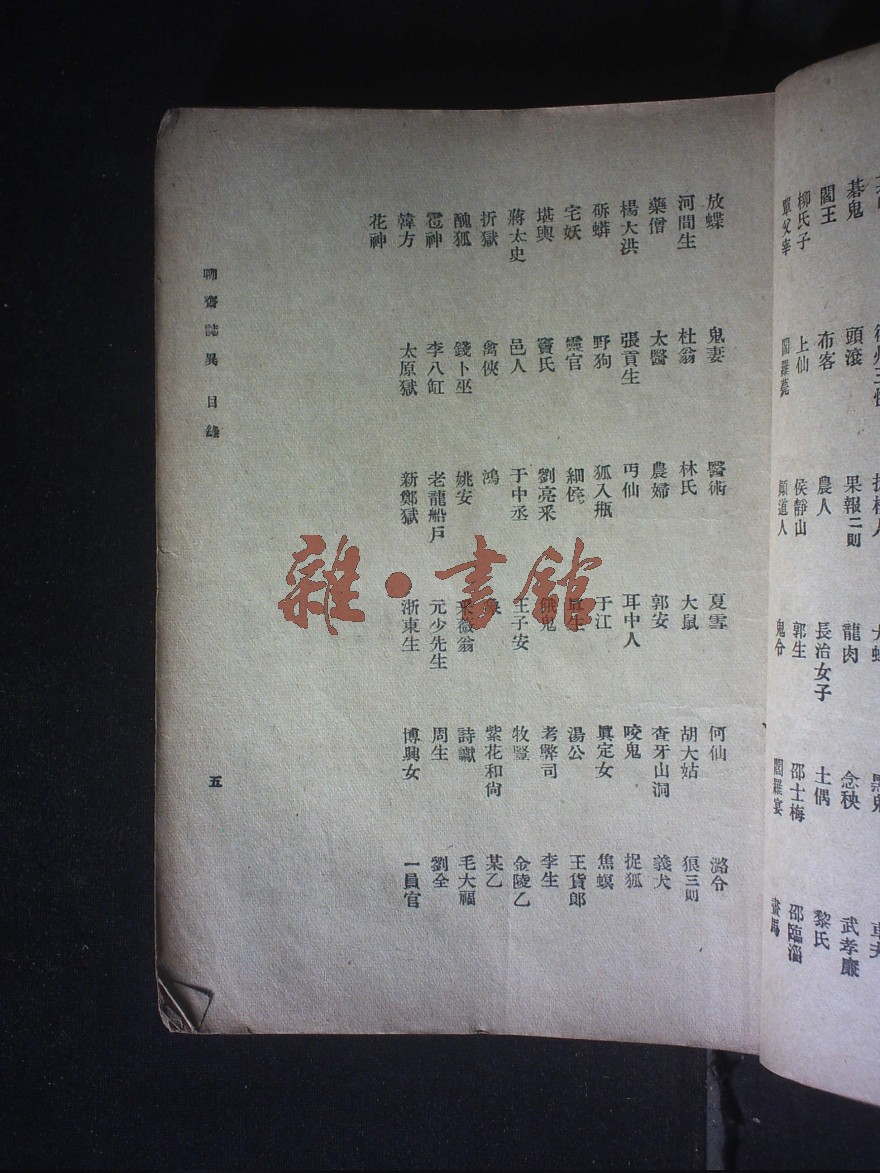 碁鬼 頭滾 果報二則 龍肉 念秧 武孝廉
閻王 布客 農人 長治女子 土偶 黎氏
柳氏子 上仙 侯靜山 郭生 邵士梅 邵臨淄
單父宰 閻羅薨 顛道人 鬼令 閻羅宴 畫馬
放蝶 鬼妻 醫術 夏雪 何仙 潞令
河間生 杜翁 林氏 大鼠 胡大姑 狼三則
藥僧 太醫 農婦 郭安 查牙山洞 義犬
楊大洪 張貢生 丐仙 耳中人 咬鬼 捉狐
斫蟒 野狗 狐入瓶 于江 眞定女 焦螟
宅妖 靈官 細侯 眞生 湯公 王貨郎
堪輿 竇氏 劉亮采 餓鬼 考弊司 李生
蔣太史 邑人 于中丞 王子安 牧豎 金陵乙
折獄 禽俠 鴻 象 紫花和尙 某乙
醜狐 錢卜巫 姚安 采薇翁 詩讞 毛大福
雹神 李八缸 老龍船戶 元少先生 周生 劉全
韓方 太原獄 新鄭獄 浙東生 博興女 一員官
花神
聊齋誌異 目錄 五
雜·書館